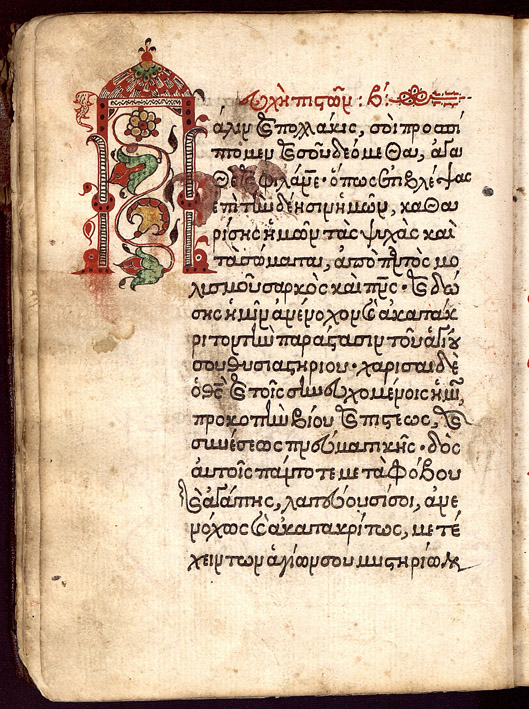 εὐχὴ πιστῶν : β :
Πάλιν καὶ πολλάκις, σοὶ προσπί
πτομεν καὶ σοῦ δεόμεθα, ἀγα
θὲ καὶ φιλάνε· ὅπως ἐπιβλέψας
ἐπὶ τὴν δέησιν ἡμῶν, καθα
ρίσης ἡμῶν τὰς ψυχὰς καὶ
τὰ σώματα, ἀπὸ παντὸς μο
λισμοῦ σαρκὸς καὶ πνς· καὶ δώ
σης ἡμῖν ἀνένοχον καὶ ἀκατάκ
ριτον τὴν παράστασιν τοῦ ἁγίου
σου θυσιαστηρίου· χάρισαι δὲ
ὁ θς καὶ τοῖς συνευχομένοις ἡμῖν,
προκοπὴν βίου καὶ πίστεως, καὶ
συνέσεως πνευματικῆς· δὸς
αὐτοῖς πάντοτε μετὰ φόβου
καὶ ἀγάπης, λατρεύουσί σοι, ἀνε
νόχως καὶ ἀκατακρίτως, μετέ
χειν τῶν ἁγίων σου μυστηρίων